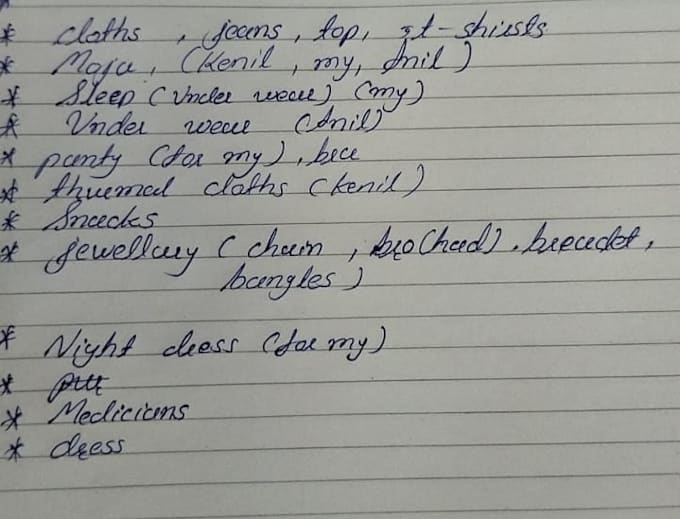 * cloths , jeans, top, t-shirts
* Moja, (kenil, my, Anil)
* Sleep (Under wear) (my)
* Under wear (Anil)
* panty (for my), bra
* thermal cloths (kenil)
* Snacks
* Jewellary (chain, bracelet,
bangles)
* Night dress (for my)
*
* Medicians
* dress